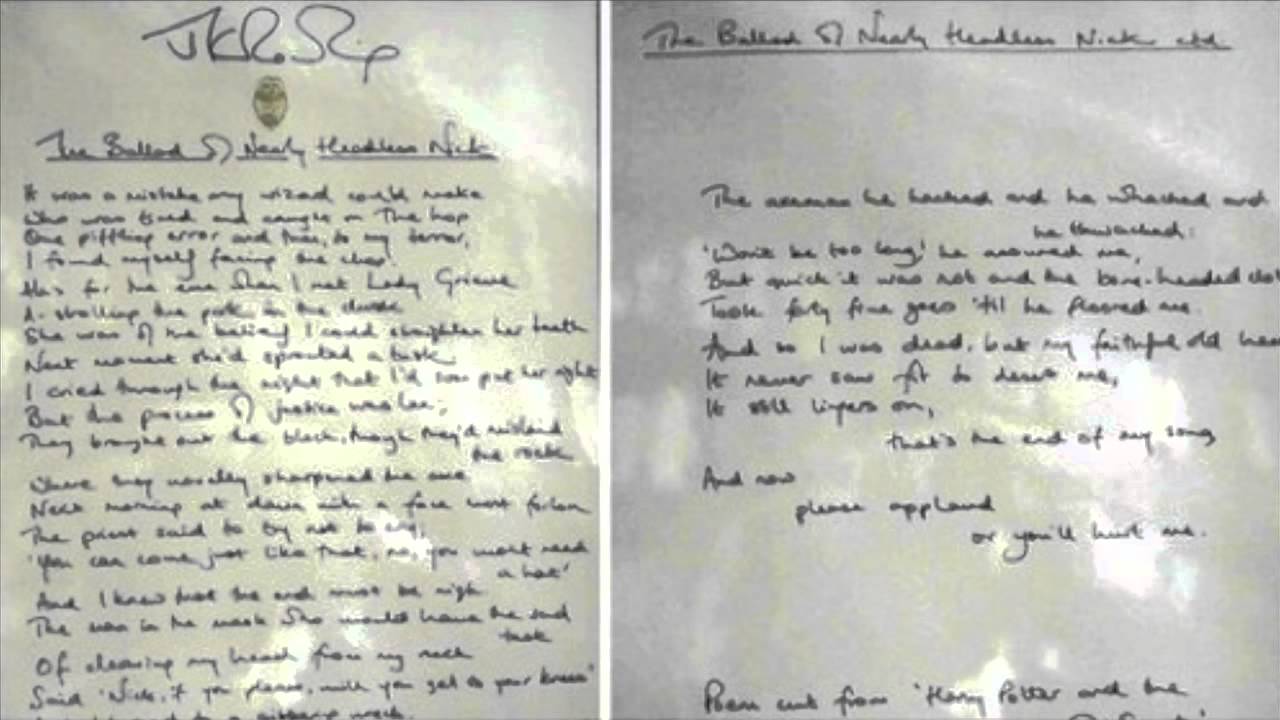 JKRowling
The Ballad of Nearly Headless Nick
It was a mistake any wizard could make
Who was tired and caught on the hop
One piffling error and then, to my terror,
I found myself facing the chop.
Alas for the eve when I met Lady Grieve
A-strolling the park in the dusk
She was of the belief I could straighten her teeth
Next moment she'd sprouted a tusk
I cried through the night that I'd soon put her right
But the process of justice was lax;
They brought out the block, though they'd mislaid
the rock
Where they usually sharpened the axe
Next morning at dawn with a face most forlorn
The priest said to try not to cry,
'You can come just like that, no, you won't need
a hat'
And I knew that the end must be nigh
The man in the mask who would have the sad
task
Of cleaving my head from my neck
Said 'Nick, if you please, will you get to your knees'
to a gibbering wreck.
The Ballad of Nearly Headless Nick ctd
The axeman he hacked and he whacked and
he thwacked:
'Won't be too long', he assured me,
But quick it was not and the bone-headed clot
Took forty five goes 'til he floored me.
And so I was dead, but my faithful old head
It never saw fit to desert me,
It still lingers on,
that's the end of my song
And now
please applaud
or you'll hurt me.
Poem cut from 'Harry Potter and the